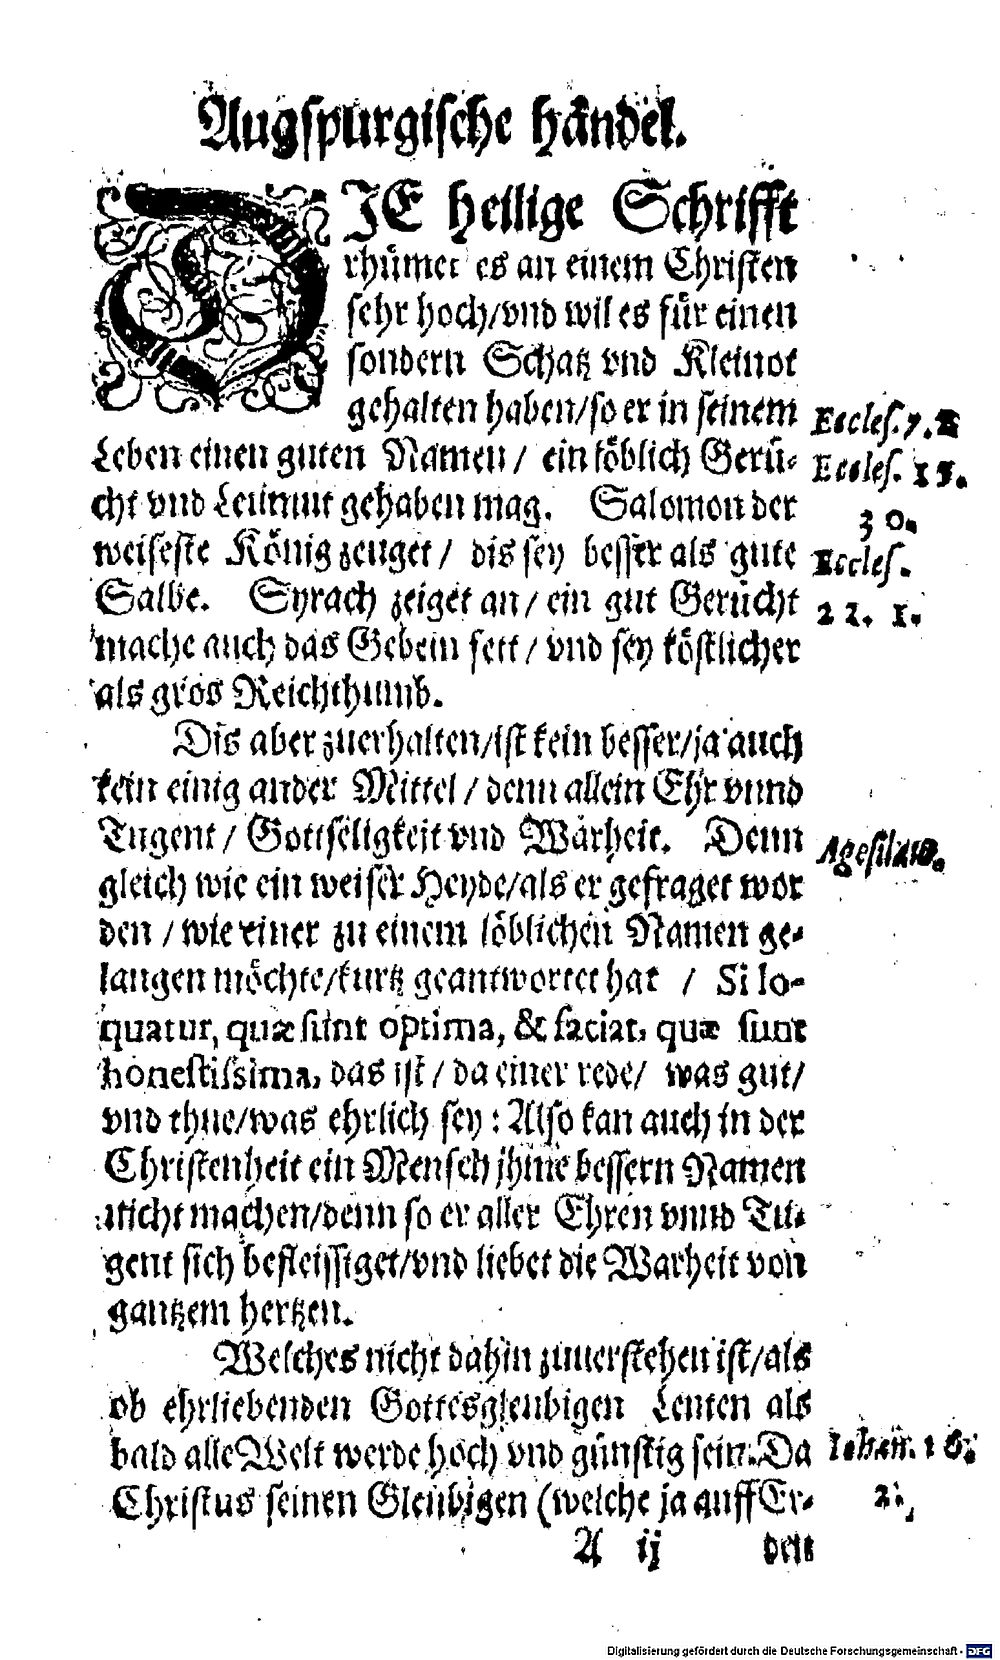 Augspurgische händel.
DIE heilige Schrifft
rhümet es an einem Christen
sehr hoch/vnd wil es für einen
sondern Schatz vnd Kleinot
gehalten haben/so er in seinem
Leben einen guten Namen / ein löblich Gerü-
cht vnd Leumut gehaben mag. Salomon der
weiseste König zeuget / dis sey besser als gute
Salbe. Syrach zeiget an / ein gut Gerücht
mache auch das Gebein fett / vnd sey köstlicher
als gros Reichthumb.
Eccles. 7. 2
Eccles. 15.
30.
Eccles.
22. 1.
Dis aber zuerhalten/ist kein besser/ja auch
kein einig ander Mittel / denn allein Ehr vnnd
Tugent / Gottseligkeit vnd Warheit. Denn
gleich wie ein weiser Heyde/als er gefraget wor
den / wie einer zu einem löblichen Namen ge-
langen möchte/kurtz geantwortet hat / Si lo-
quatur, quæ sunt optima, & faciat, quæ sunt
honestissima, das ist / da einer rede/ was gut/
vnd thue/was ehrlich sey : Also kan auch in der
Christenheit ein Mensch jhme bessern Namen
nicht machen/denn so er aller Ehren vnnd Tu-
gent sich befleissiget/vnd liebet die Warheit von
gantzem hertzen.
Agesilaus.
Welches nicht dahin zuuerstehen ist/als
ob ehrliebenden Gottesgleubigen Leuten als
bald alle Welt werde hoch vnd günstig sein. Da
Christus seinen Gleubigen (welche ja auff Er-
Iohan. 16.
2.
A ij den
Digitalisierung gefördert durch die Deutsche Forschungsgemeinschaft - DFG